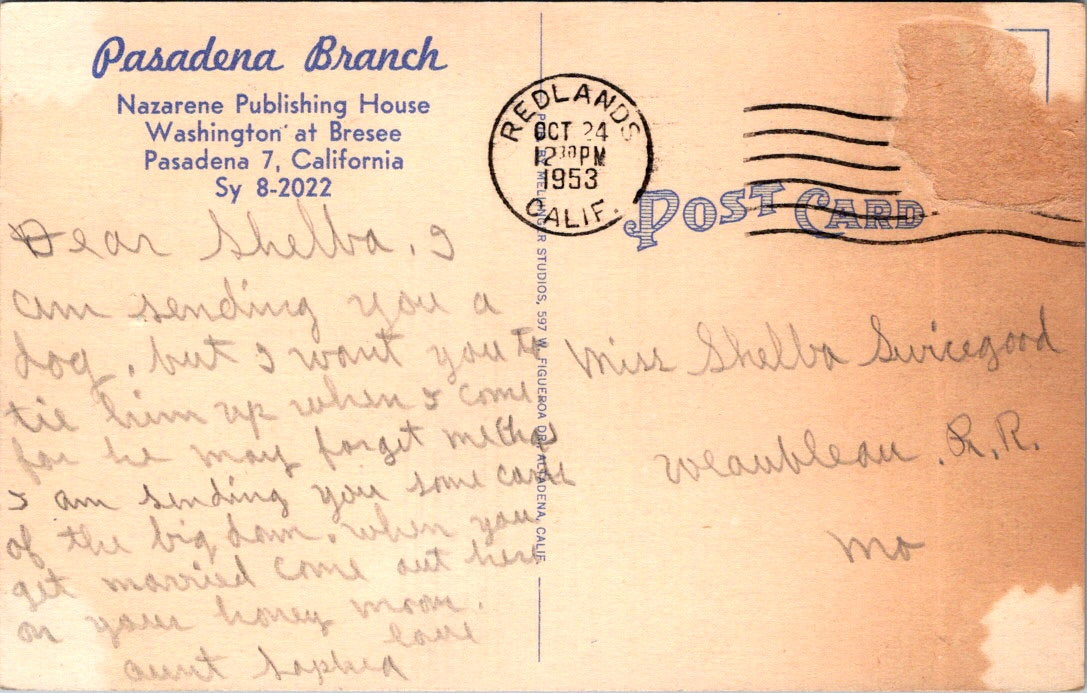 Pasadena Branch
Nazarene Publishing House
Washington at Bresee
Pasadena 7, California
Sy 8-2022
REDLANDS
OCT 24
12 30 PM
1953
CALIF.
POST CARD
MELLINGER STUDIOS, 597 W. FIGUEROA DR., ALTADENA, CALIF.
Dear Shelba, I
am sending you a
dog, but I want you to
tie him up when I come
for he may forget me
I am sending you some
of the big dam. when you
get married come out here
on your honey moon.
love
aunt Sophia
Miss Shelba Swicegood
Weaubleau, R.R.
Mo